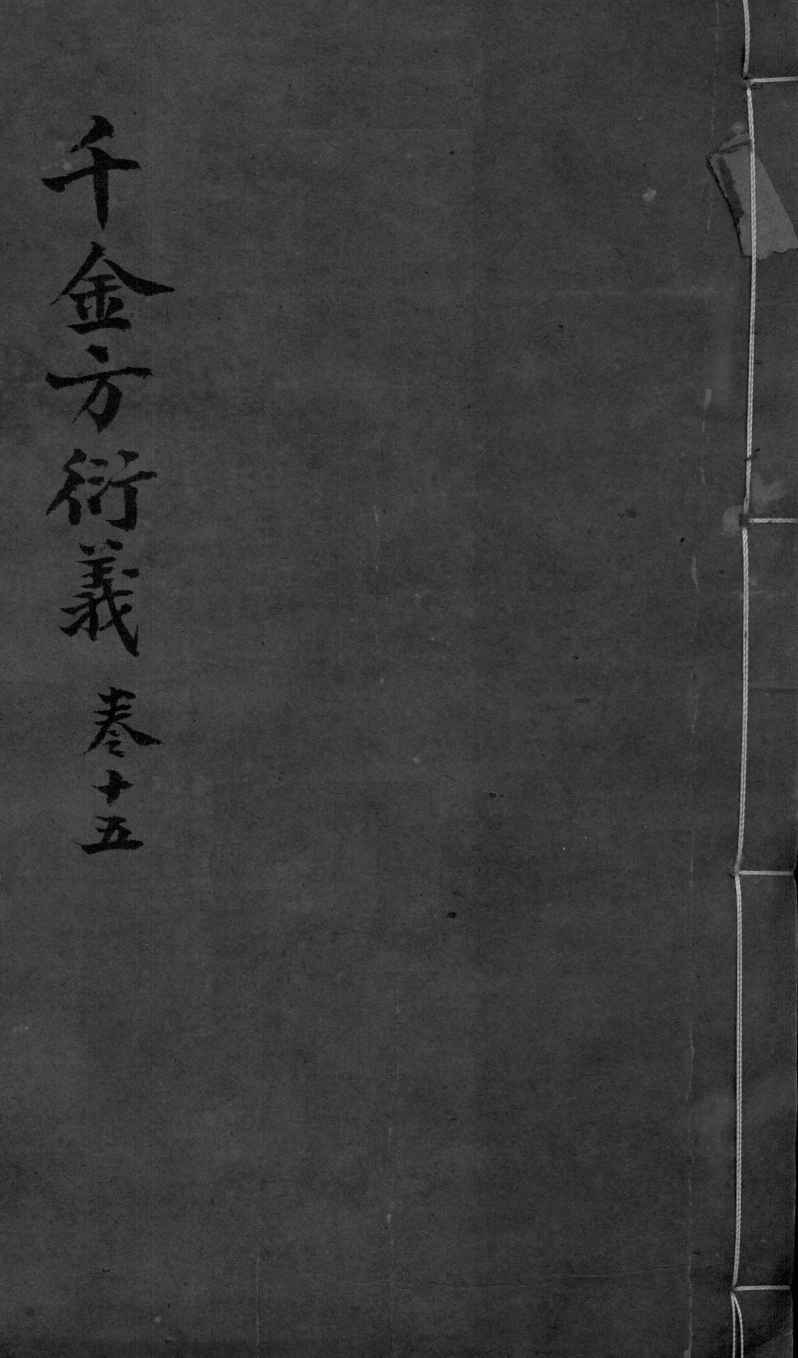 千金方衍義 卷十五